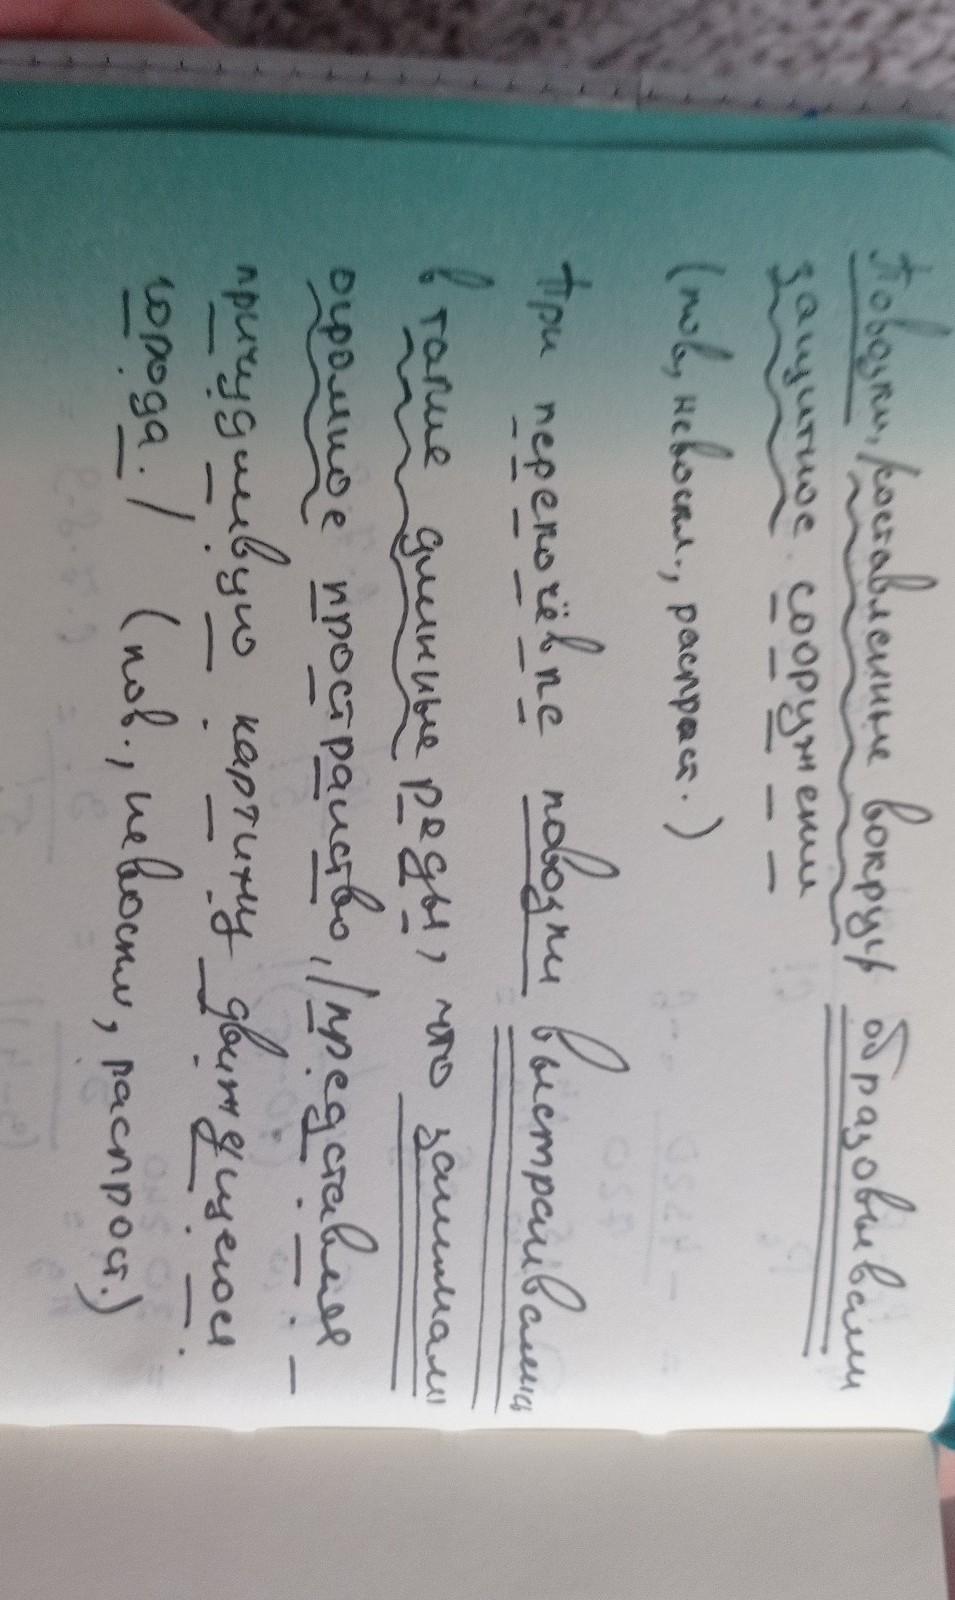 Повозки, /поставленные вокруг/ образовывали
защитное сооружении
(пов, невоскл., распрост.)
При перекочёвке повозки выстраивались
в такие длинные ряды, что занимали
огромное пространство, /представляя
причудливую картину движущегося
города./ (пов., невоскл, распрост.)